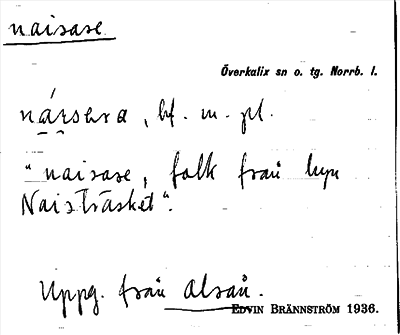 naisase
Överkalix sn o. tg. Norrb. l.
bf. m. pl.
"naisase, folk från byn
Naisträsket".
Uppg. från Alsån.
EDVIN BRÄNNSTRÖM 1936.